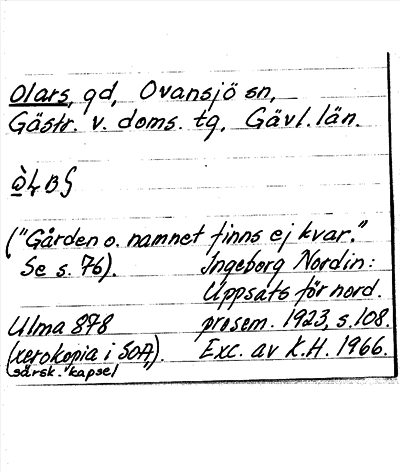 Olars, gd, Ovansjö sn,
Gästr. v. doms. tg, Gävl. län.
("Gården o. namnet finns ej kvar."
Se s. 76). Ingeborg Nordin:
Uppsats för nord.
Ulma 878 prosem. 1923, s. 108.
(xerokopia i SOA,). Exc. av K.H. 1966.
särsk. kapsel